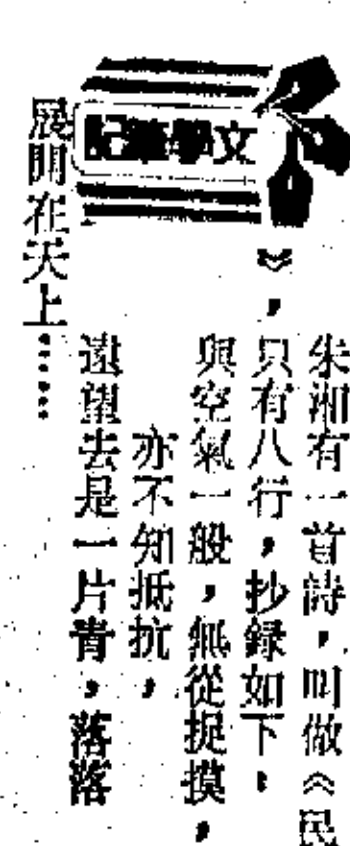 文學筆記
朱湘有一首詩，叫做《民
》，只有八行，抄錄如下：
與空氣一般，無從捉摸，
亦不知抵抗，
遠望去是一片青，落落
展開在天上……